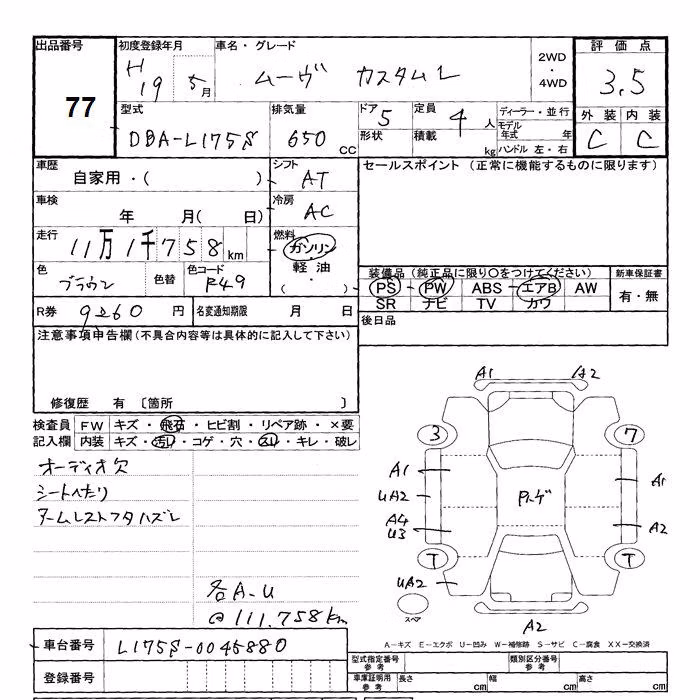 出品番号 初度登録年月 車名・グレード 評価点
77
H 19 5月 ムーヴ カスタムL 2WD・4WD 3.5
型式 排気量 ドア 定員 ディーラー・並行 外装 内装
DBA-L175S 650 CC 5 4人 モデル年式 年 C C
形状 積載 kg ハンドル 左・右
車歴 シフト セールスポイント (正常に機能するものに限ります)
自家用・( ) AT
車検 冷房
年 月( 日) AC
走行 燃料
11万1千758km ガソリン
軽油
( )
色 色替 色コード 装備品 (純正品に限り○をつけてください) 新車保証書
ブラウン R49 PS PW ABS エアB AW 有・無
SR ナビ TV カワ
R券 9260円 名変通知期限 月 日 後日品
注意事項申告欄 (不具合内容等は具体的に記入して下さい)
修復歴 有 〔箇所 〕
A1 A2
検査員 FW キズ・飛石・ヒビ割・リペア跡・×要
記入欄 内装 キズ・汚れ・コゲ・穴・スレ・キレ・破レ
3 7
オーディオ欠
シートへたり
アームレストフタハズレ
A1 A1
UA2
A4 A2
U3
T T
UA2
各A-U
@111,758km
スペア
A2
A-キズ E-エクボ U-凹み W-補修跡 S-サビ C-腐食 XX-交換済
車台番号 L175S-0045880
型式指定番号 参考 類別区分番号 参考
登録番号
車庫証明用 参考 長さ cm 幅 cm 高さ cm